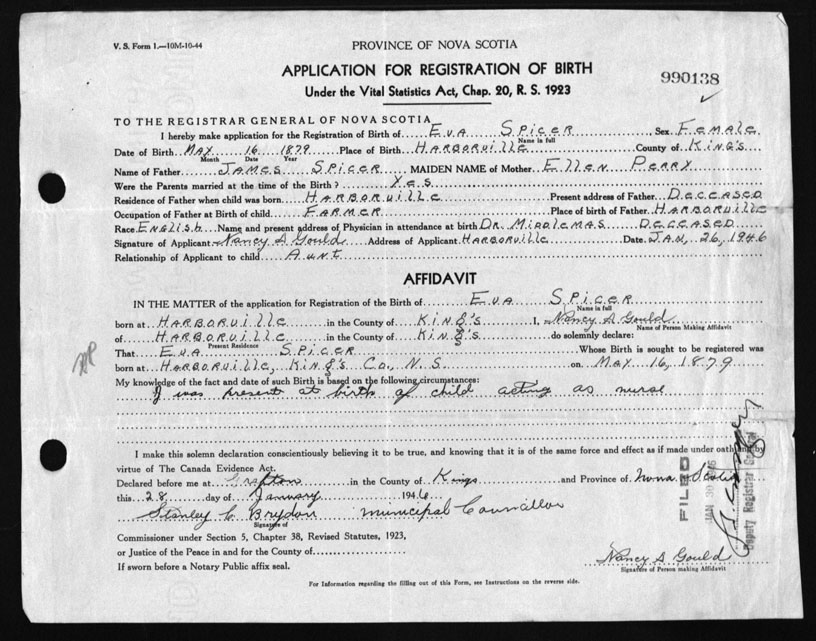 V. S. Form 1.—10M-10-44
PROVINCE OF NOVA SCOTIA
APPLICATION FOR REGISTRATION OF BIRTH
990138
Under the Vital Statistics Act, Chap. 20, R. S. 1923
TO THE REGISTRAR GENERAL OF NOVA SCOTIA
I hereby make application for the Registration of Birth of EVA SPICER Sex FEMALE
Name in full
Date of Birth MAY 16 1879 Place of Birth HARBORVILLE County of KING'S
Month Date Year
Name of Father JAMES SPICER MAIDEN NAME of Mother ELLEN PERRY
Were the Parents married at the time of the Birth? YES
Residence of Father when child was born HARBORVILLE Present address of Father DECEASED
Occupation of Father at Birth of child FARMER Place of birth of Father HARBORVILLE
Race ENGLISH Name and present address of Physician in attendance at birth DR. MIDDLEMAS DECEASED
Signature of Applicant Nancy S Gould Address of Applicant HARBORVILLE Date JAN, 26, 1946
Relationship of Applicant to child AUNT
AFFIDAVIT
IN THE MATTER of the application for Registration of the Birth of EVA SPICER
Name in full
born at HARBORVILLE in the County of KING'S I, Nancy S. Gould
Name of Person Making Affidavit
of HARBORVILLE in the County of KING'S do solemnly declare:
Present Residence
That EVA SPICER Whose Birth is sought to be registered was
born at HARBORVILLE, KING'S CO., N.S. on MAY 16, 1879
My knowledge of the fact and date of such Birth is based on the following circumstances:
I was present at birth of child acting as nurse
I make this solemn declaration conscientiously believing it to be true, and knowing that it is of the same force and effect as if made under oath by
virtue of The Canada Evidence Act.
Declared before me at Grafton in the County of Kings and Province of Nova Scotia
this 28 day of January 1946
Stanley C Brydon Municipal Councillor
Signature of
Commissioner under Section 5, Chapter 38, Revised Statutes, 1923,
or Justice of the Peace in and for the County of
If sworn before a Notary Public affix seal.
Nancy S Gould
Signature of Person making Affidavit
For Information regarding the filling out of this Form, see Instructions on the reverse side.
FILED
JAN 30
Deputy Registrar General